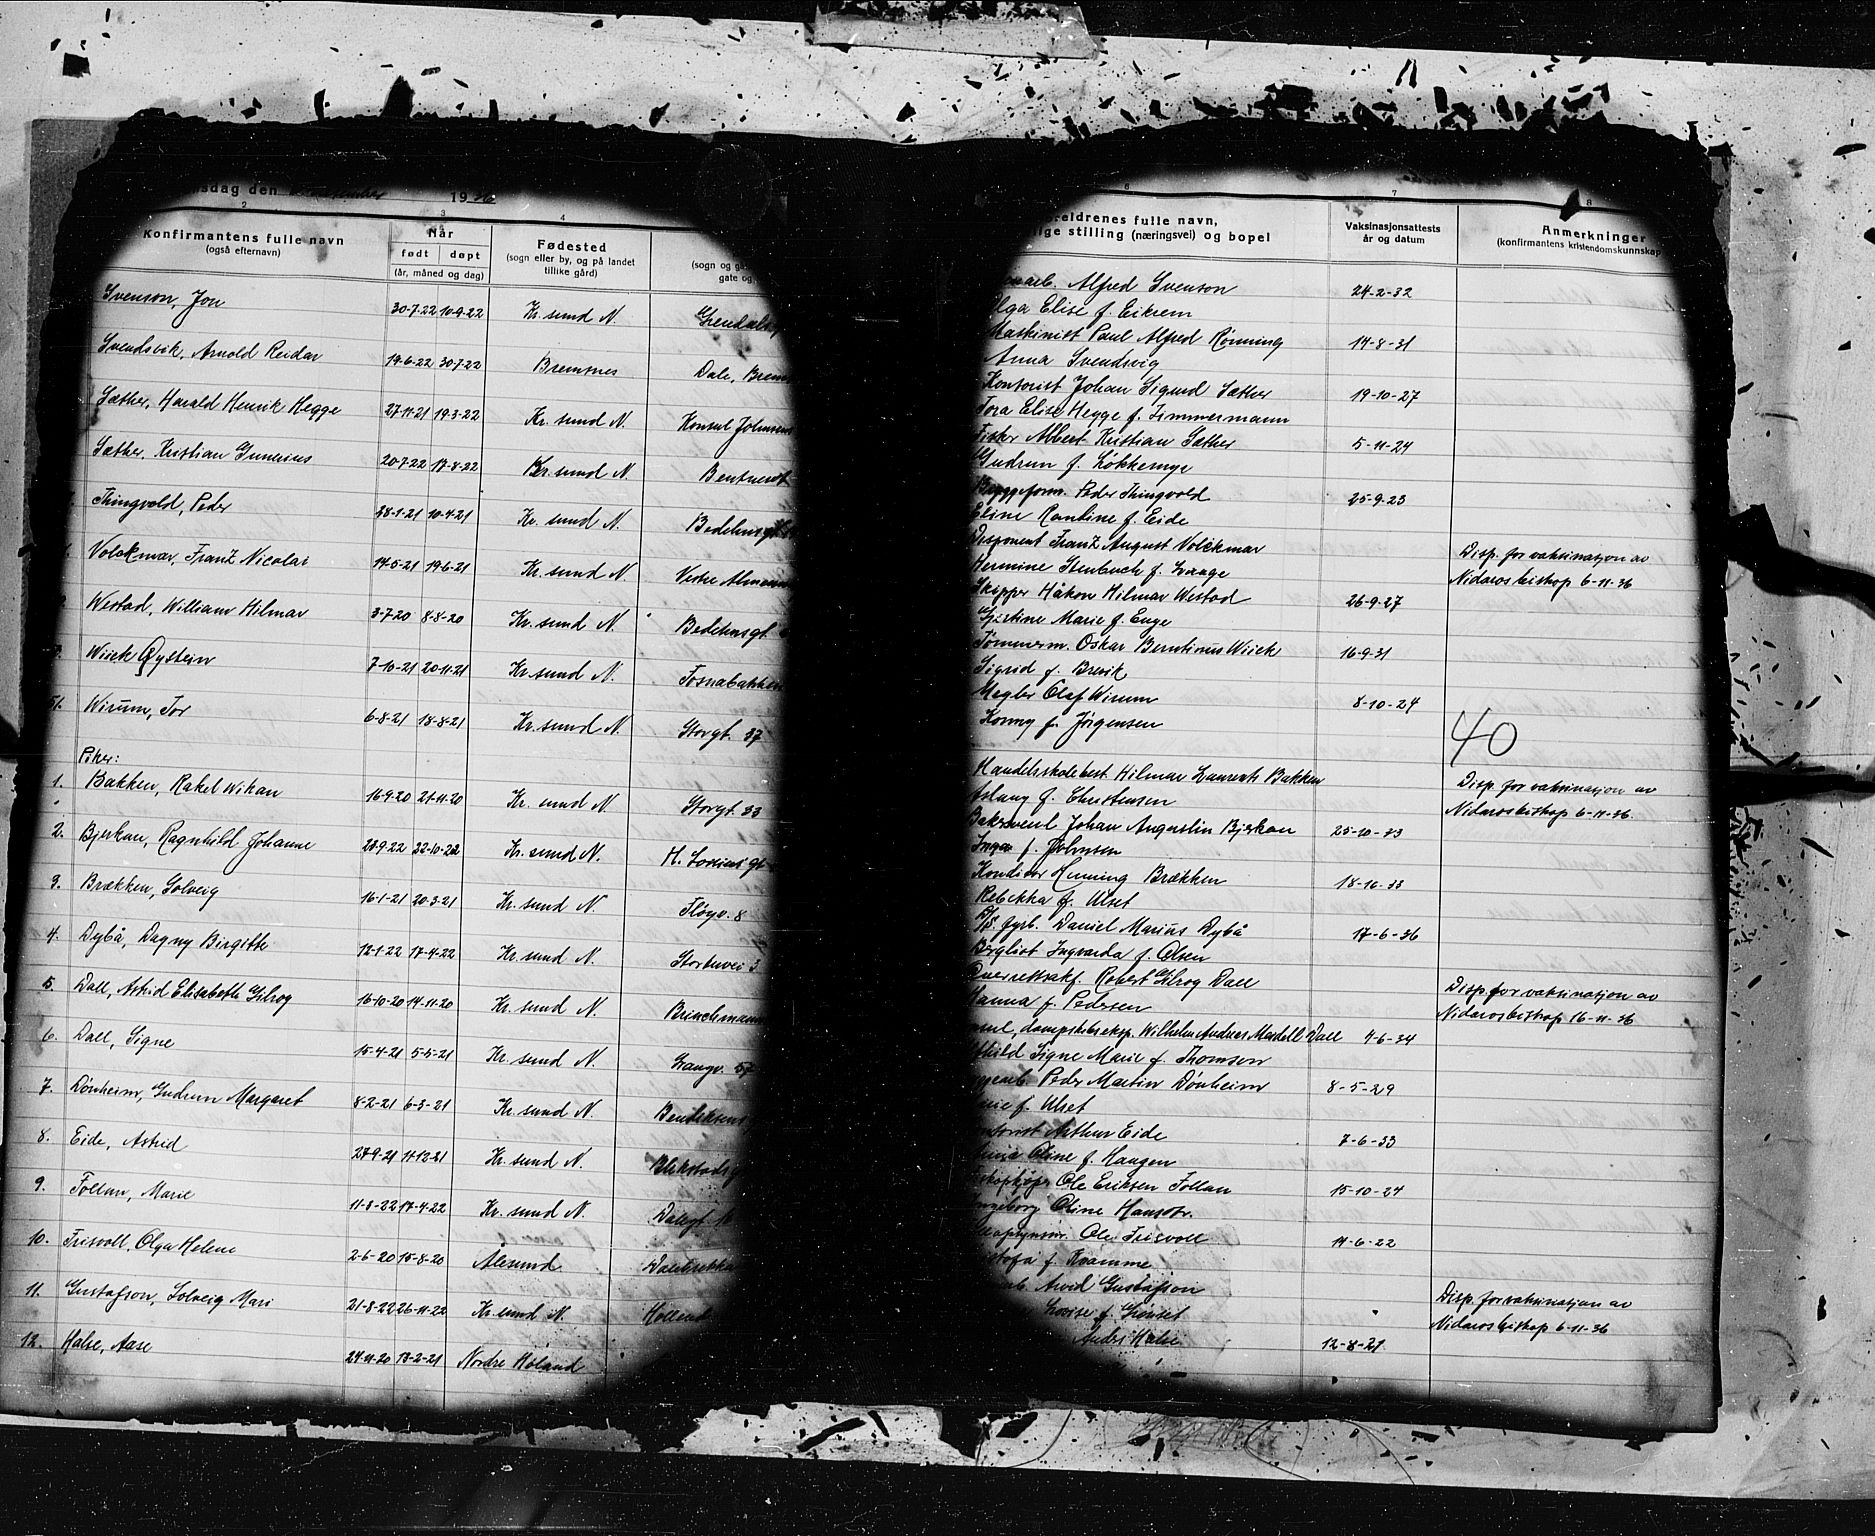 sdag den 1936
2 3 4
Konfirmantens fulle navn
(også efternavn)
Når
født døpt
(år, måned og dag)
Fødested
(sogn eller by, og på landet
tillike gård)
(sogn og
gate og
Svenson, Jon 30-7-22 10-9-22 Kr. sund N.
Svendsvik, Arnold Reidar 19-6-22 30-7-22 Bremsnes Dale, Brem
Sæther, Harald Henrik Hegge 27-11-21 19-3-22 Kr. sund N. Konsul Johnsens
Sæther, Kristian Gunerius 20-7-22 17-8-22 Kr. sund N.
Thingvold, Peder 28-1-21 10-4-21 Kr. sund N. Bedehusgt
Volckmar, Franz Nicolai 14-5-21 19-6-21 Kr. sund N. Vestre Almenn
Westad, William Hilmar 3-7-20 8-8-20 Kr. sund N. Bedehusgt.
Wiick Øystein 7-10-21 20-11-21 Kr. sund N. Fosnabakken
51. Wirum, Tor 6-8-21 18-8-21 Kr. sund N. Storgt. 37
Piker:
1. Bakken, Rakel Wikan 16-9-20 21-11-20 Kr. sund N. Storgt. 33
2. Bjerkan, Ragnhild Johanne 22-10-22 Kr. sund N. H.
3. Brækken, Solveig 16-1-21 20-3-21 Kr. sund N. Fløyv. 8
4. Dybå, Dagny Birgitte 12-1-22 17-4-22 Kr. sund N. Stortuvei 3
5. Dall, Astrid Elisabeth Gilrog 16-10-20 14-11-20 Kr. sund N. Brinchmann
6. Dall, Signe 15-4-21 5-5-21 Kr. sund N. Langv. 57
7. Dønheim, Gudrun Margaret 8-2-21 6-3-21 Kr. sund N. Bendiksens
8. Eide, Astrid 27-9-21 11-12-21 Kr. sund N.
9. Follan, Marie 11-3-22 17-4-22 Kr. sund N. Dalegt. 16
10. Frisvoll, Olga Helene 2-6-20 15-8-20 Ålesund Dalebrekka
11. Gustafson, Solveig Mari 21-8-22 26-11-22 Kr. sund N.
12. Halse, Aase 24-11-20 13-2-21 Nordre Høland
6 7 8
oreldrenes fulle navn,
lige stilling (næringsvei) og bopel
Vaksinasjonsattests
år og datum
Anmerkninger
(konfirmantens kristendomskunnskap
Alfred Svenson 24-2-32
Olga Elise f. Eikrem
Maskinist Paul Alfred Rønning 14-8-31
Anna Svendsvig
Kontorist Johan Sigurd Sæther 19-10-27
Tora Elise Hegge f. Zimmermann
Fisker Albert Kristian Sæther 5-11-24
Gudrun f. Løkkemye
Byggeform. Peder Thingvold 25-9-23
Eline Rantine f. Eide
Disponent Franz August Volckmar Disp. for vaksinasjon av
Hermine Stenbuch f. Lange Nidaros biskop 6-11-36
Skipper Håkon Hilmar Westad 26-9-27
Gjertine Marie f. Enge
Tømmerm. Oskar Berntinus Wiick 16-9-31
Sigrid f. Brevik
Megler Olaf Wirum 8-10-24
Konny f. Jørgensen
40
Handelsskolebest. Hilmar Laurents Bakken Disp. for vaksinasjon av
Aslaug f. Christensen Nidaros biskop 6-11-36.
Johan Augustin Bjerkan 25-10-33
Inga f. Johnsen
Konditor Henning Brækken 18-10-33
Rebekka f. Ulset
D/S fyrb. Daniel Marius Dybå 17-6-36
Bergliot Ingvarda f. Olsen
Robert Gilrog Dall Disp. for vaksinasjon av
Hanna f. Pedersen Nidaros biskop 16-11-36
dampskibseksp. Wilhelm Andreas Dall 4-6-34
Signe Marie f. Thomson
Peder Martin Dønheim 8-5-29
f. Ulset
Arthur Eide 7-6-33
Oline f. Haugen
Ole Eriksen Follan 15-10-24
Ingeborg Oline Hansdr.
Ole Frisvoll 14-6-22
f. Kvamme
Arvid Gustafson Disp. for vaksinasjon av
Lovise f. Nidaros biskop 6-11-36
Halse 12-8-21